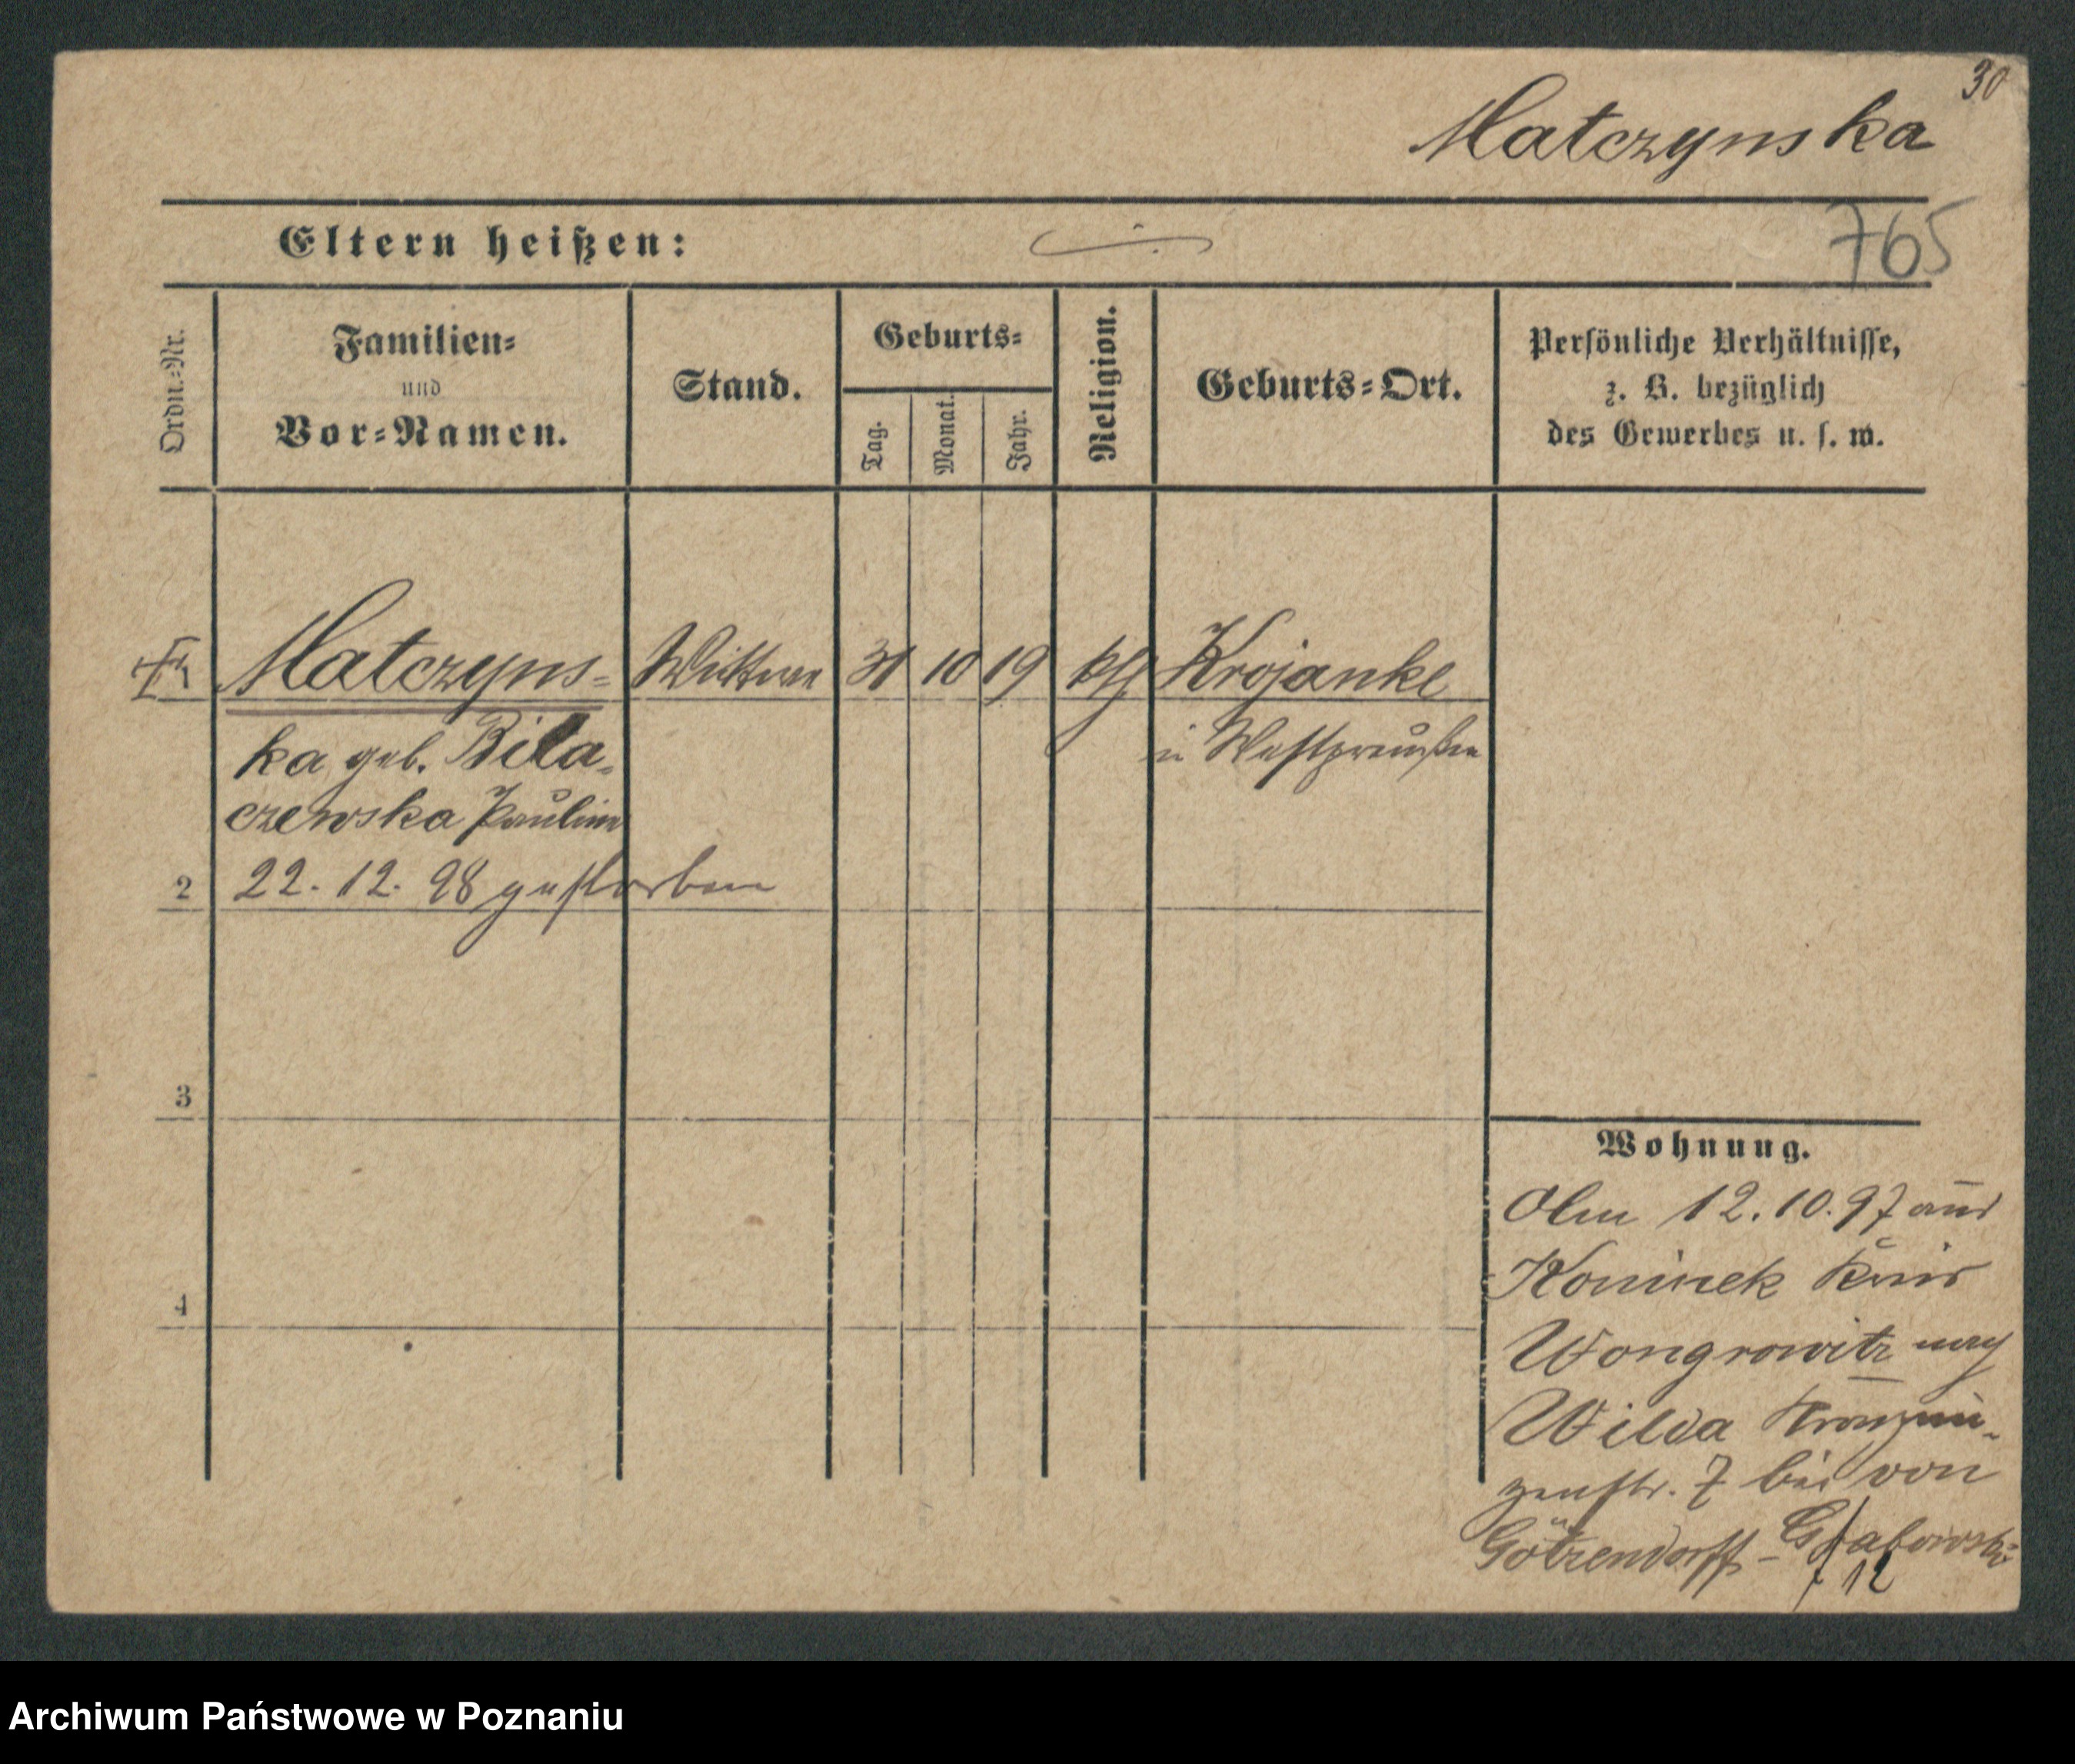 30
Matczynska
765
Eltern heißen:
Ordn.-Nr.
Familien-
und
Vor-Namen.
Stand.
Geburts-
Tag.
Monat.
Jahr.
Religion.
Geburts-Ort.
Persönliche Verhältnisse,
z. B. bezüglich
des Gewerbes u. s. w.
Matczyns- Wittwe 31 10 19 kth Krojanke
ka geb. Bila- in Westpreußen
czewska Pauline
2 22. 12. 98 gestorben
3
4
Wohnung.
Am 12. 10. 97 aus
Koninek Kreis
Wongrowitz nach
Wilda Kronprin-
zenstr. 7 bei von
Götzendorff-Grabowski
12
Archiwum Państwowe w Poznaniu